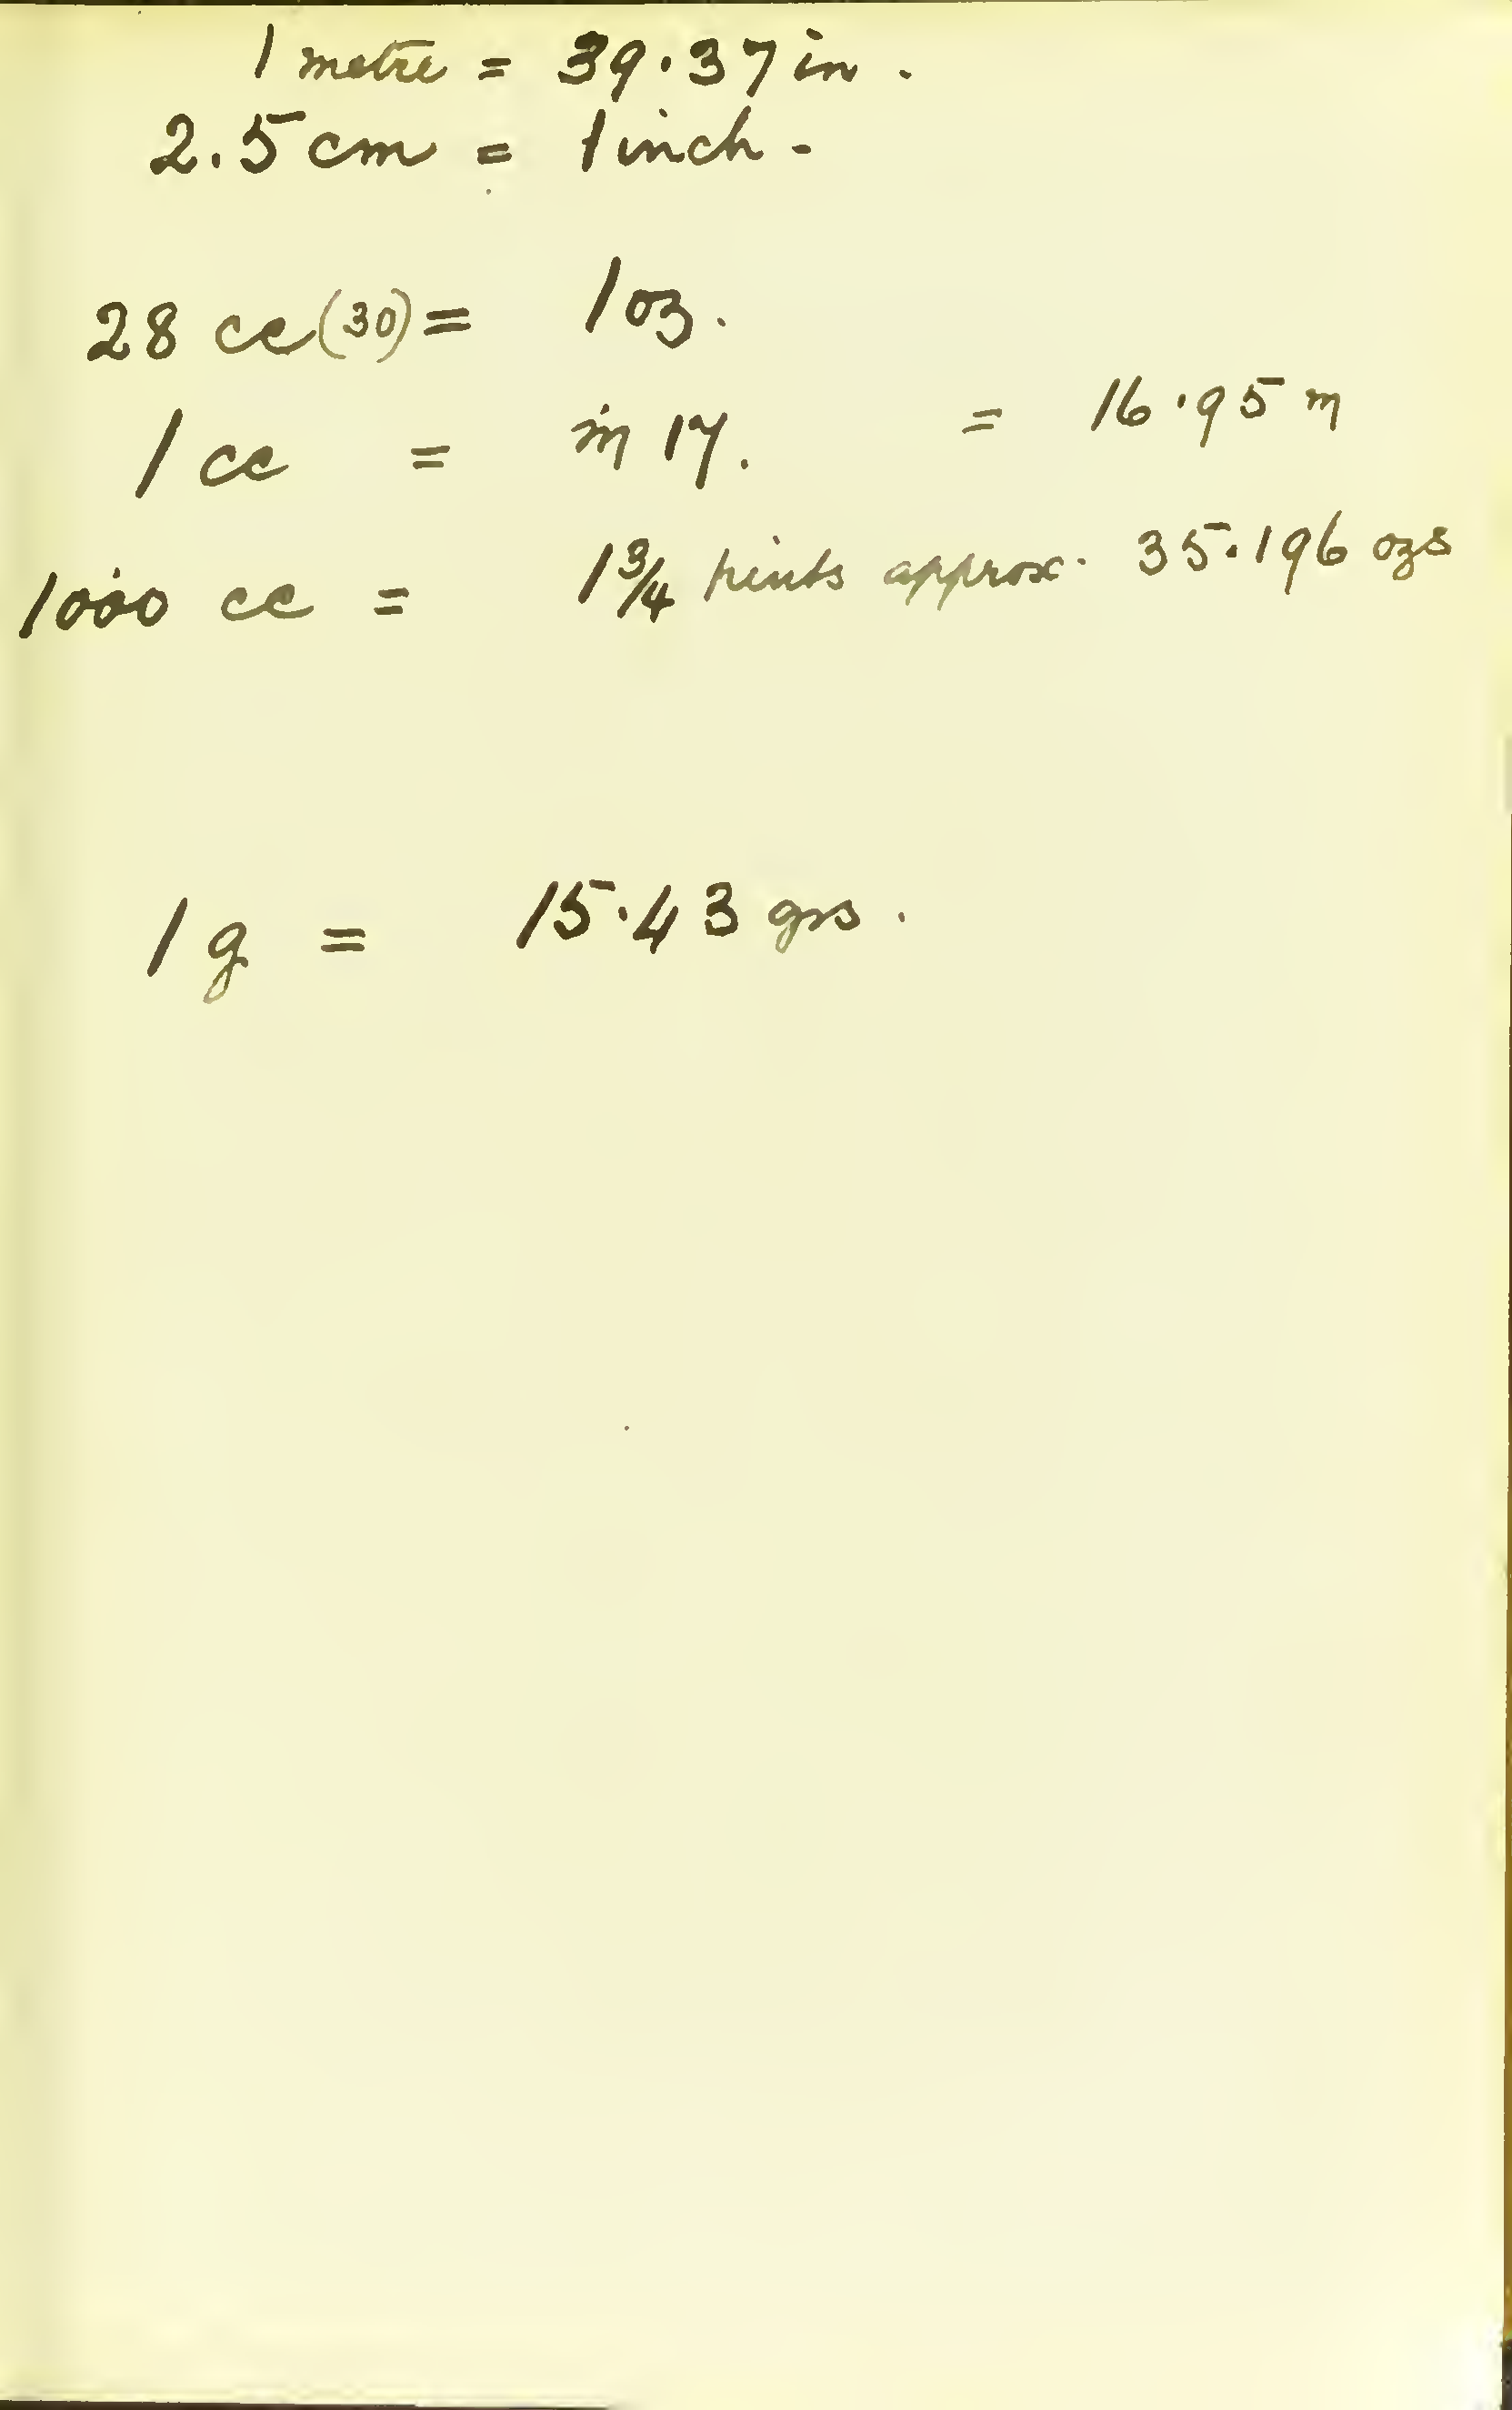 1 metre = 39.37 in.
2.5 cm = 1 inch -
28 cc (30) = 1 oz.
1 cc = m 17. = 16.95 m
1000 cc = 1 3/4 pints approx. 35.196 ozs
1 g = 15.43 grs.